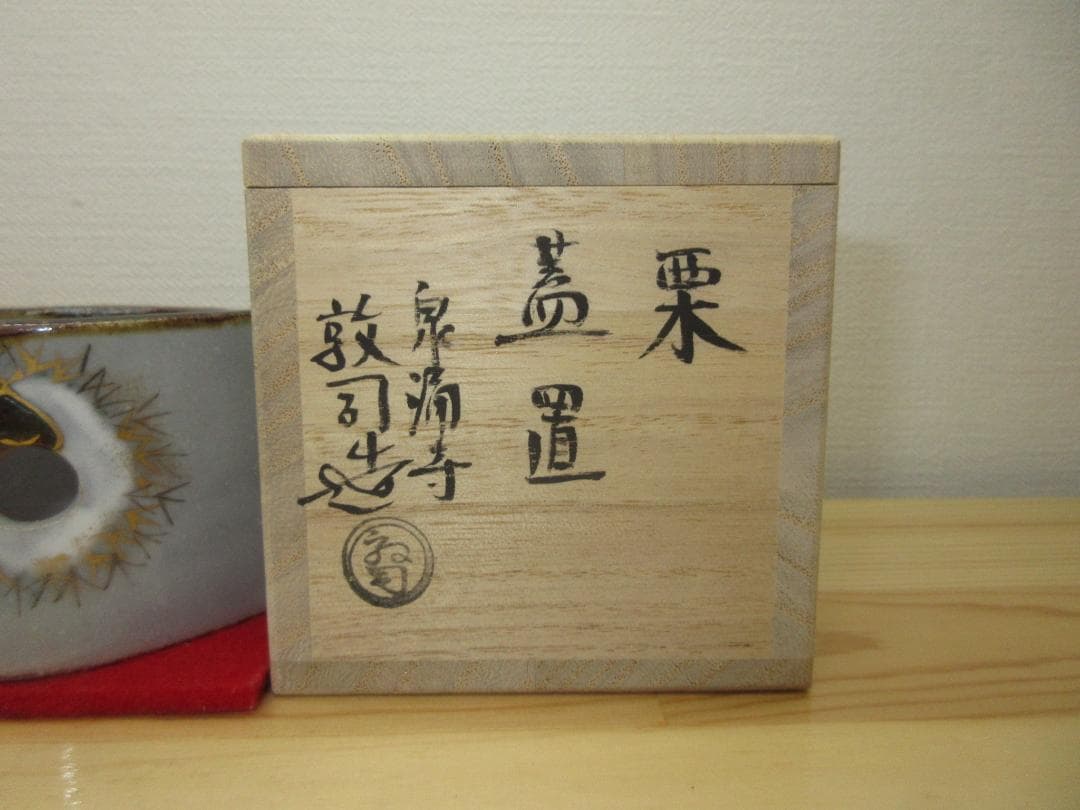 栗
蓋置
泉涌寺
敦司造
敦司